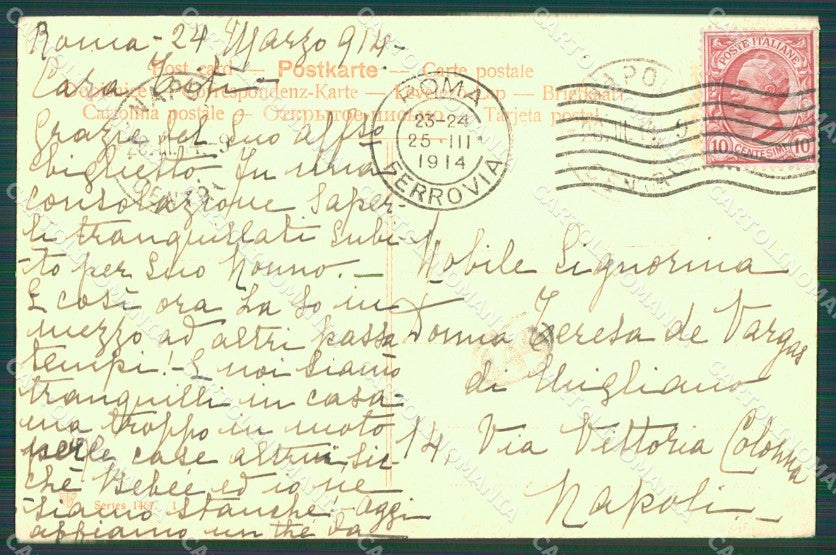 Roma - 24 Marzo 914.
Post card — Postkarte — Carte postale
Correspondenz-Karte — Brefkort
Cartolina postale — Открытое письмо — Tarjeta postal
Grazie del Suo affso
biglietto. Fu una
consolazione saper-
li tranquillati subi-
to per Suo Nonno. -
E così ora La so in
mezzo ad altri passa
tempi! - E noi siamo
tranquilli in casa
ma troppo in moto
per le case altrui sic-
chè Bebée ed io ne
siamo stanche. Oggi
abbiamo un the da
Series 1
ROMA
23-24
25 - III
1914
FERROVIA
NAPOLI
CENTRO
NAPOLI
POSTE ITALIANE
10 CENTESIMI 10
Nobile Signorina
Donna Teresa de Vargas
di Migliano
14, Via Vittoria Colonna
Napoli.
CARTOLINOMANIA